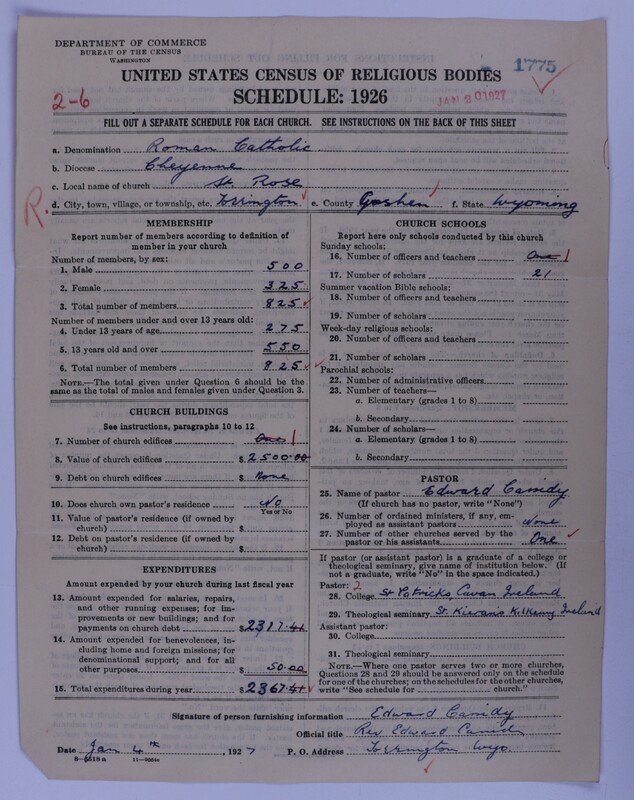 DEPARTMENT OF COMMERCE
BUREAU OF THE CENSUS
WASHINGTON
1775
UNITED STATES CENSUS OF RELIGIOUS BODIES
2-6
SCHEDULE: 1926
JAN 20 1927
FILL OUT A SEPARATE SCHEDULE FOR EACH CHURCH. SEE INSTRUCTIONS ON THE BACK OF THIS SHEET
a. Denomination Roman Catholic
b. Diocese Cheyenne
c. Local name of church St Rose
R. d. City, town, village, or township, etc. Torrington e. County Goshen f. State Wyoming
MEMBERSHIP
Report number of members according to definition of
member in your church
Number of members, by sex:
1. Male 500
2. Female 325
3. Total number of members 825
Number of members under and over 13 years old:
4. Under 13 years of age 275
5. 13 years old and over 550
6. Total number of members 825
NOTE.—The total given under Question 6 should be the
same as the total of males and females given under Question 3.
CHURCH BUILDINGS
See instructions, paragraphs 10 to 12
7. Number of church edifices One 1
8. Value of church edifices $ 2500.00
9. Debt on church edifices $ None
10. Does church own pastor's residence No
Yes or No
11. Value of pastor's residence (if owned by
church) $
12. Debt on pastor's residence (if owned by
church) $
EXPENDITURES
Amount expended by your church during last fiscal year
13. Amount expended for salaries, repairs,
and other running expenses; for im-
provements or new buildings; and for
payments on church debt $ 2317.41
14. Amount expended for benevolences, in-
cluding home and foreign missions; for
denominational support; and for all
other purposes $ 50.00
15. Total expenditures during year $ 2367.41
CHURCH SCHOOLS
Report here only schools conducted by this church
Sunday schools:
16. Number of officers and teachers One 1
17. Number of scholars 21
Summer vacation Bible schools:
18. Number of officers and teachers
19. Number of scholars
Week-day religious schools:
20. Number of officers and teachers
21. Number of scholars
Parochial schools:
22. Number of administrative officers
23. Number of teachers—
a. Elementary (grades 1 to 8)
b. Secondary
24. Number of scholars—
a. Elementary (grades 1 to 8)
b. Secondary
PASTOR
25. Name of pastor Edward Cassidy
(If church has no pastor, write "None")
26. Number of ordained ministers, if any, em-
ployed as assistant pastors None
27. Number of other churches served by the
pastor or his assistants One
If pastor (or assistant pastor) is a graduate of a college or
theological seminary, give name of institution below. (If
not a graduate, write "No" in the space indicated.)
Pastor: 2
28. College St Patricks Cavan Ireland
29. Theological seminary St. Kierans Kilkenny Ireland
Assistant pastor:
30. College
31. Theological seminary
NOTE.—Where one pastor serves two or more churches,
Questions 28 and 29 should be answered only on the schedule
for one of the churches; on the schedules for the other churches
write "See schedule for church."
Signature of person furnishing information Edward Cassidy
Official title Rev Edward Cassidy
Date Jan 4th, 1927 P. O. Address Torrington Wyo.